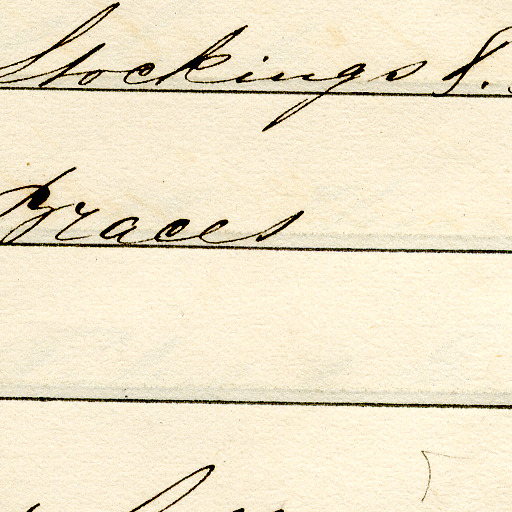 Stockings S.
Braces